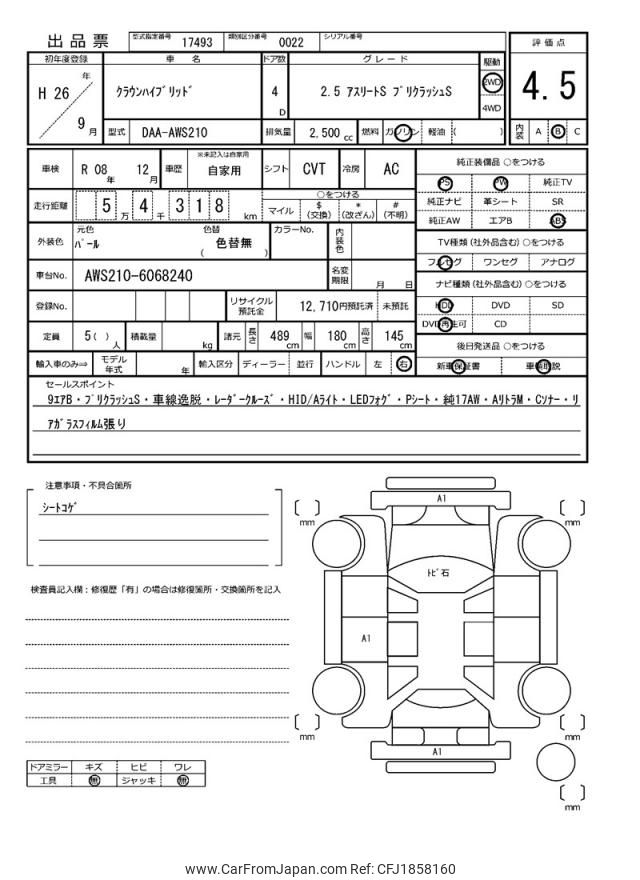 出品票 型式指定番号 17493 類別区分番号 0022 シリアル番号
評価点
4.5
内装 A B C
初年度登録 車名 ドア数 グレード 駆動
H 26 年 9 月
クラウンハイブリッド 4 D 2.5 アスリートS ブリクラッシュS 2WD
4WD
型式 DAA-AWS210 排気量 2,500 cc 燃料 ガソリン 軽油 ( )
車検 R 08 年 12 月 車歴 ※未記入は自家用 自家用 シフト CVT 冷房 AC
走行距離 5 万 4 千 3 1 8 km
○をつける
マイル $ (交換) * (改ざん) # (不明)
外装色 元色 パール 色替 ( 色替無 ) カラーNo. 内装色
車台No. AWS210-6068240 名変期限 月 日
登録No. リサイクル預託金 12,710円預託済 未預託
定員 5 ( ) 人 積載量 kg 諸元 長さ 489 cm 幅 180 cm 高さ 145 cm
輸入車のみ⇒ モデル年式 年 輸入区分 ディーラー 並行 ハンドル 左 右
純正装備品 ○をつける
PS PW 純正TV
純正ナビ 革シート SR
純正AW エアB ABS
TV種類 (社外品含む) ○をつける
フルセグ ワンセグ アナログ
ナビ種類 (社外品含む) ○をつける
HDD DVD SD
DVD再生可 CD
後日発送品 ○をつける
新車保証書 車輌取説
セールスポイント
9エアB・ブリクラッシュS・車線逸脱・レーダークルーズ・HID/Aライト・LEDフォグ・Pシート・純17AW・AリトラM・Cソナー・リ
アガラスフィルム張り
注意事項・不具合箇所
シートコゲ
検査員記入欄：修復歴「有」の場合は修復箇所・交換箇所を記入
ドアミラー キズ ヒビ ワレ
工具 無 ジャッキ 無
A1
[ ] mm
[ ] mm
トビ石
A1
[ ] mm
[ ] mm
A1
[ ] mm
www.CarFromJapan.com Ref: CFJ1858160